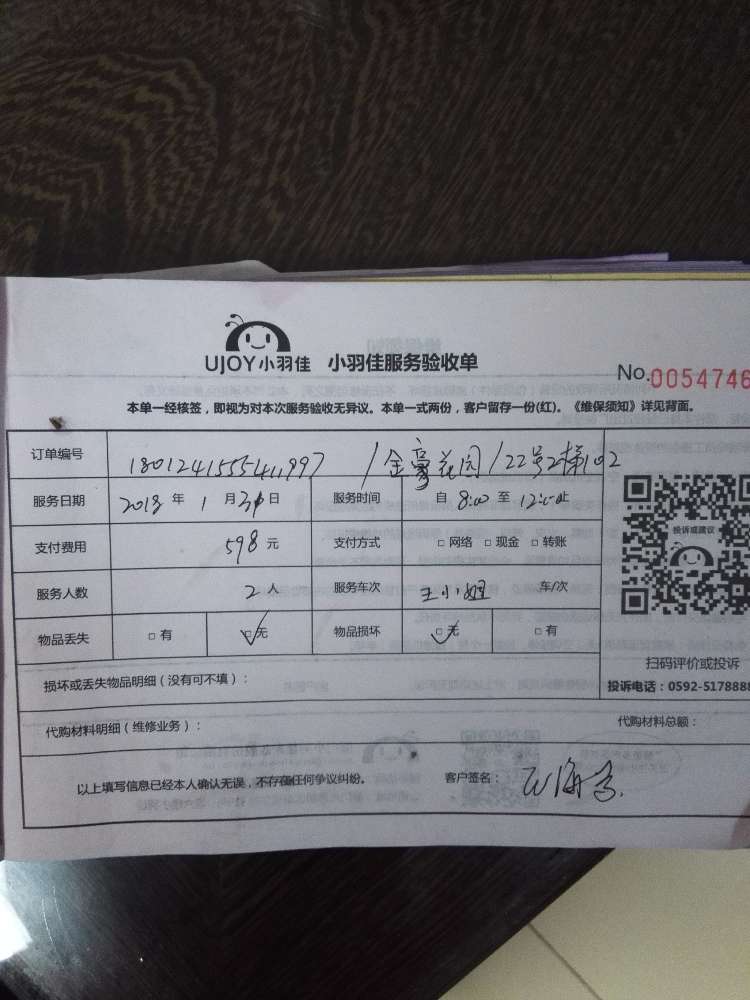 UJOY小羽佳 小羽佳服务验收单
No.0054746
本单一经核签，即视为对本次服务验收无异议。本单一式两份，客户留存一份(红)。《维保须知》详见背面。
订单编号 /金豪花园/22号2梯102
服务日期 2018 年 1 月 日 服务时间 自 8:00 至 12:00止
支付费用 598 元 支付方式 □ 网络 □ 现金 □ 转账
服务人数 2 人 服务车次 王小姐 车/次
物品丢失 □ 有 □ 无 物品损坏 □ 无 □ 有
投诉或建议
扫码评价或投诉
投诉电话：0592-5178888
损坏或丢失物品明细（没有可不填）：
代购材料明细（维修业务）： 代购材料总额：
以上填写信息已经本人确认无误，不存在任何争议纠纷。 客户签名：